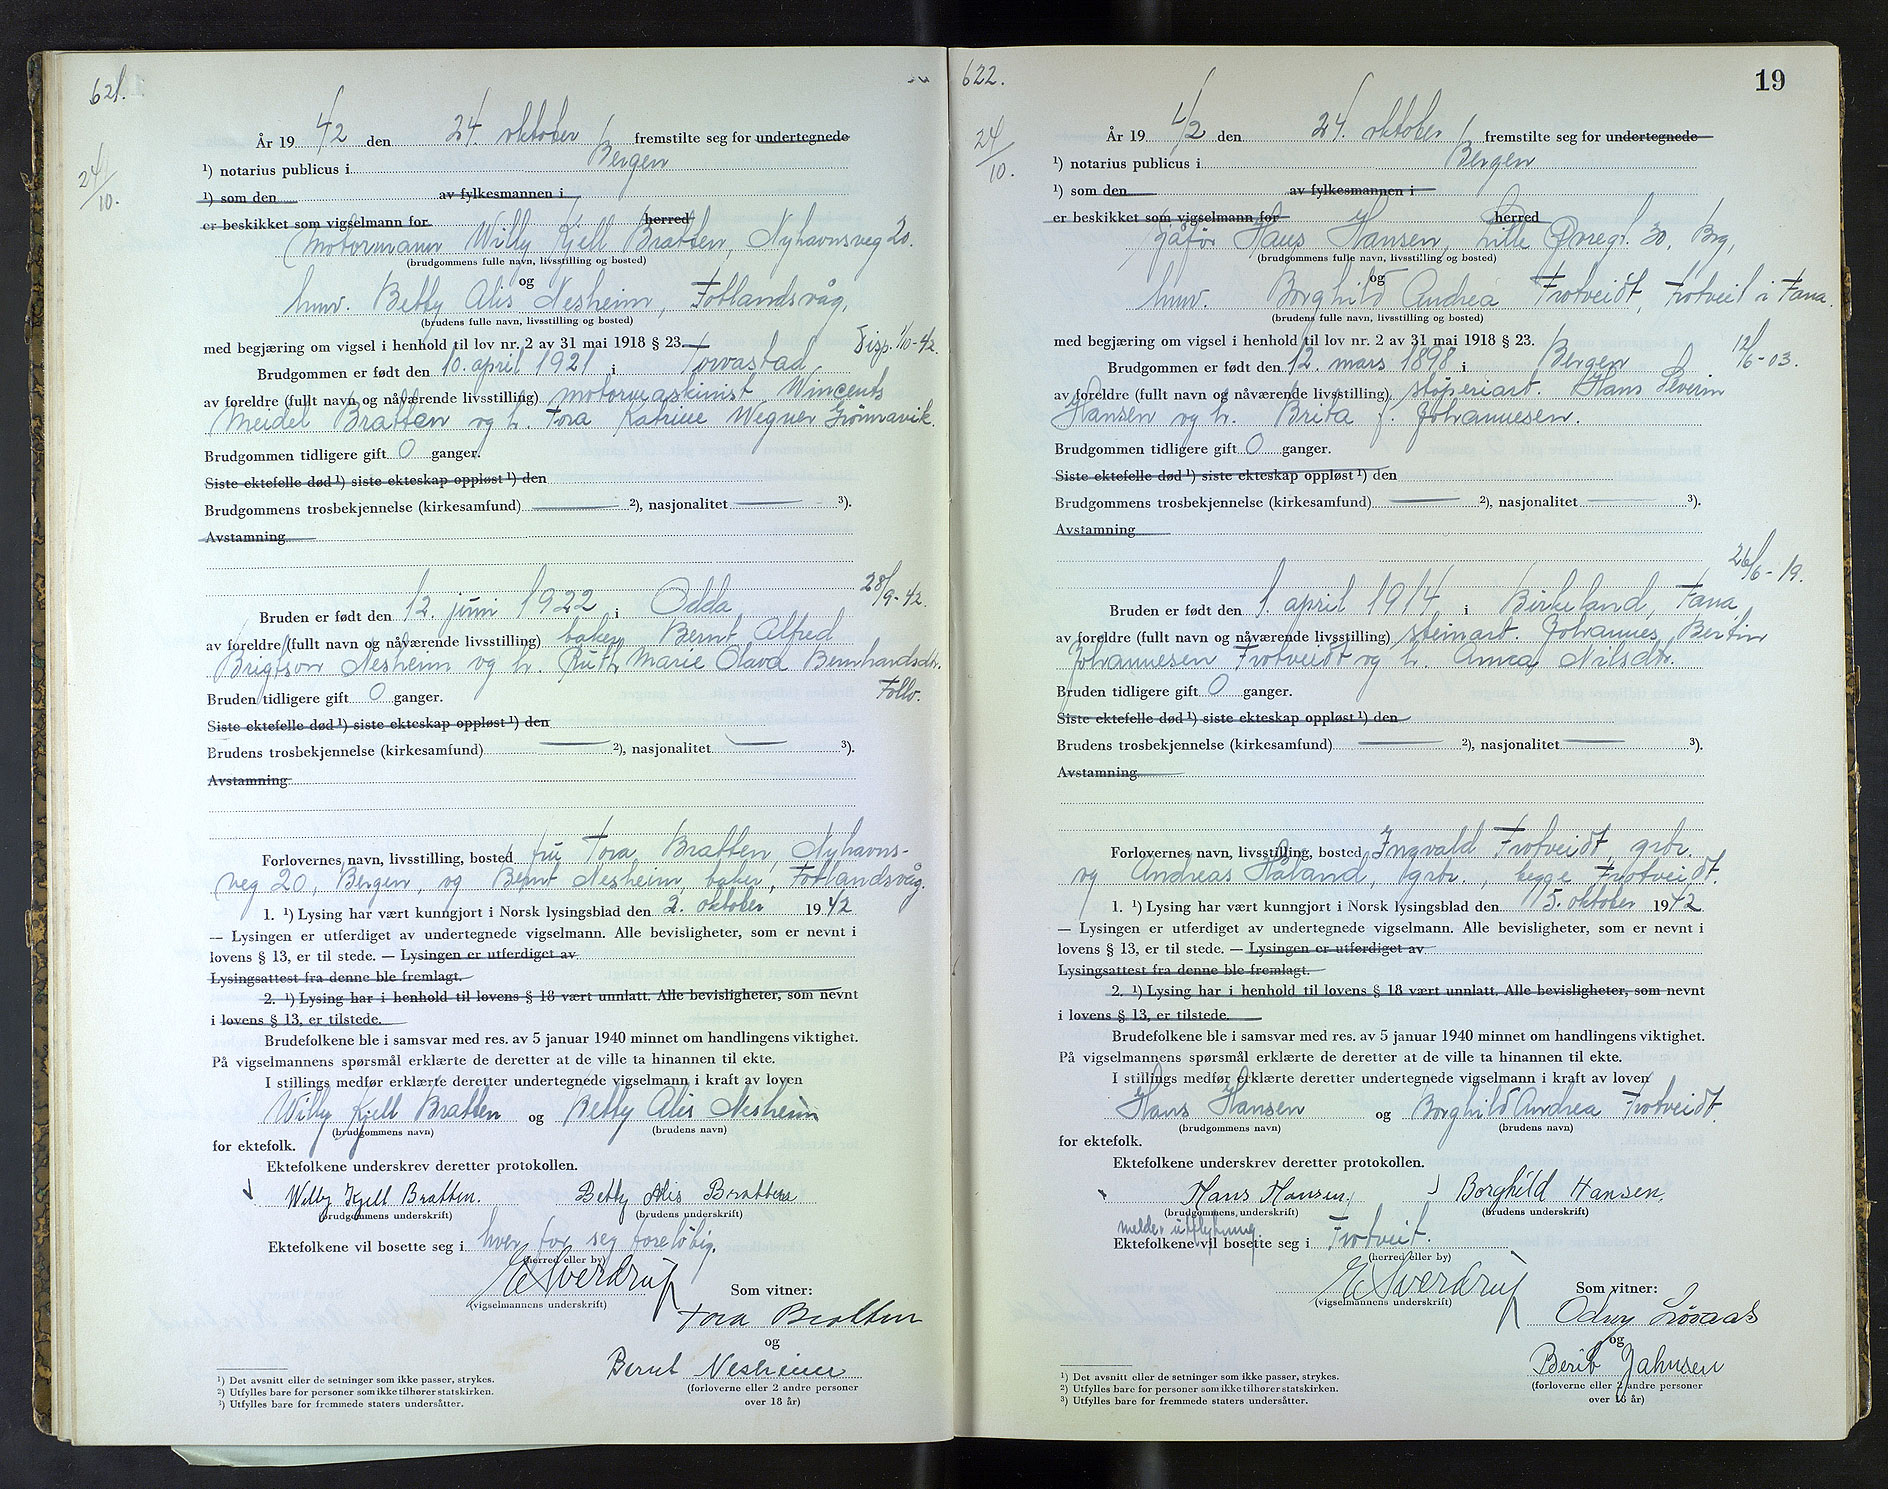 621.
24/10.
År 19 42 den 24. oktober fremstilte seg for undertegnede
¹) notarius publicus i Bergen
¹) som den av fylkesmannen i
er beskikket som vigselmann for herred
motormann Willy Kjell Bratten, Nyhavnsveg 20.
(brudgommens fulle navn, livsstilling og bosted)
og
husv. Betty Alis Nesheim, Fotlandsvåg,
(brudens fulle navn, livsstilling og bosted)
med begjæring om vigsel i henhold til lov nr. 2 av 31 mai 1918 § 23. Disp. 1/10-42.
Brudgommen er født den 10. april 1921 i Torvastad
av foreldre (fullt navn og nåværende livsstilling) motormaskinist Wincents
Meidel Bratten og h. Tora Katrine Wegner Grønnavik.
Brudgommen tidligere gift 0 ganger.
Siste ektefelle død ¹) siste ekteskap oppløst ¹) den
Brudgommens trosbekjennelse (kirkesamfund) ²), nasjonalitet ³).
Avstamning
28/9-42.
Bruden er født den 12. juni 1922 i Odda
av foreldre (fullt navn og nåværende livsstilling) baker Bernt Alfred
Brigtson Nesheim og h. Ruth Marie Olava Bernhardsdtr.
Bruden tidligere gift 0 ganger. Follo.
Siste ektefelle død ¹) siste ekteskap oppløst ¹) den
Brudens trosbekjennelse (kirkesamfund) ²), nasjonalitet ³).
Avstamning
Forlovernes navn, livsstilling, bosted fru Tora Bratten, Nyhavns-
veg 20, Bergen, og Bernt Nesheim, baker, Fotlandsvåg.
1. ¹) Lysing har vært kunngjort i Norsk lysingsblad den 2. oktober 1942
— Lysingen er utferdiget av undertegnede vigselmann. Alle bevisligheter, som er nevnt i
lovens § 13, er til stede. — Lysingen er utferdiget av
Lysingsattest fra denne ble fremlagt.
2. ¹) Lysing har i henhold til lovens § 18 vært unnlatt. Alle bevisligheter, som nevnt
i lovens § 13, er tilstede.
Brudefolkene ble i samsvar med res. av 5 januar 1940 minnet om handlingens viktighet.
På vigselmannens spørsmål erklærte de deretter at de ville ta hinannen til ekte.
I stillings medfør erklærte deretter undertegnede vigselmann i kraft av loven
Willy Kjell Bratten og Betty Alis Nesheim
(brudgommens navn) (brudens navn)
for ektefolk.
Ektefolkene underskrev deretter protokollen.
Willy Kjell Bratten. Betty Alis Bratten
(brudgommens underskrift) (brudens underskrift)
Ektefolkene vil bosette seg i hver for seg foreløbig.
(herred eller by)
E Sverdrup
(vigselmannens underskrift)
Som vitner:
Tora Bratten
og
Bernt Nesheim
(forloverne eller 2 andre personer
over 18 år)
¹) Det avsnitt eller de setninger som ikke passer, strykes.
²) Utfylles bare for personer som ikke tilhører statskirken.
³) Utfylles bare for fremmede staters undersåtter.
622.
19
24/10.
År 19 42 den 24. oktober fremstilte seg for undertegnede
¹) notarius publicus i Bergen
¹) som den av fylkesmannen i
er beskikket som vigselmann for herred
sjåfør Hans Hansen, Lille Øvregt. 30, Brg,
(brudgommens fulle navn, livsstilling og bosted)
og
husv. Borghild Andrea Trotveidt, Trotveit i Fana.
(brudens fulle navn, livsstilling og bosted)
med begjæring om vigsel i henhold til lov nr. 2 av 31 mai 1918 § 23.
12/6-03.
Brudgommen er født den 12. mars 1898 i Bergen
av foreldre (fullt navn og nåværende livsstilling) støperiarb. Hans Severin
Hansen og h. Brita f. Johannesen.
Brudgommen tidligere gift 0 ganger.
Siste ektefelle død ¹) siste ekteskap oppløst ¹) den
Brudgommens trosbekjennelse (kirkesamfund) ²), nasjonalitet ³).
Avstamning
26/6-19.
Bruden er født den 1. april 1914 i Birkeland, Fana
av foreldre (fullt navn og nåværende livsstilling) steinarb. Johannes Bertin
Johannesen Trotveidt og h. Anna Nilsdtr.
Bruden tidligere gift 0 ganger.
Siste ektefelle død ¹) siste ekteskap oppløst ¹) den
Brudens trosbekjennelse (kirkesamfund) ²), nasjonalitet ³).
Avstamning
Forlovernes navn, livsstilling, bosted Ingvald Trotveidt, grbr.
og Andreas Håland, grbr., begge Trotveidt.
1. ¹) Lysing har vært kunngjort i Norsk lysingsblad den 5. oktober 1942
— Lysingen er utferdiget av undertegnede vigselmann. Alle bevisligheter, som er nevnt i
lovens § 13, er til stede. — Lysingen er utferdiget av
Lysingsattest fra denne ble fremlagt.
2. ¹) Lysing har i henhold til lovens § 18 vært unnlatt. Alle bevisligheter, som nevnt
i lovens § 13, er tilstede.
Brudefolkene ble i samsvar med res. av 5 januar 1940 minnet om handlingens viktighet.
På vigselmannens spørsmål erklærte de deretter at de ville ta hinannen til ekte.
I stillings medfør erklærte deretter undertegnede vigselmann i kraft av loven
Hans Hansen og Borghild Andrea Trotveidt.
(brudgommens navn) (brudens navn)
for ektefolk.
Ektefolkene underskrev deretter protokollen.
Hans Hansen. Borghild Hansen.
(brudgommens underskrift) (brudens underskrift)
melder utflytning.
Ektefolkene vil bosette seg i Trotveit.
(herred eller by)
E Sverdrup
(vigselmannens underskrift)
Som vitner:
Odny
og
Berit Jahnsen
(forloverne eller 2 andre personer
over 18 år)
¹) Det avsnitt eller de setninger som ikke passer, strykes.
²) Utfylles bare for personer som ikke tilhører statskirken.
³) Utfylles bare for fremmede staters undersåtter.